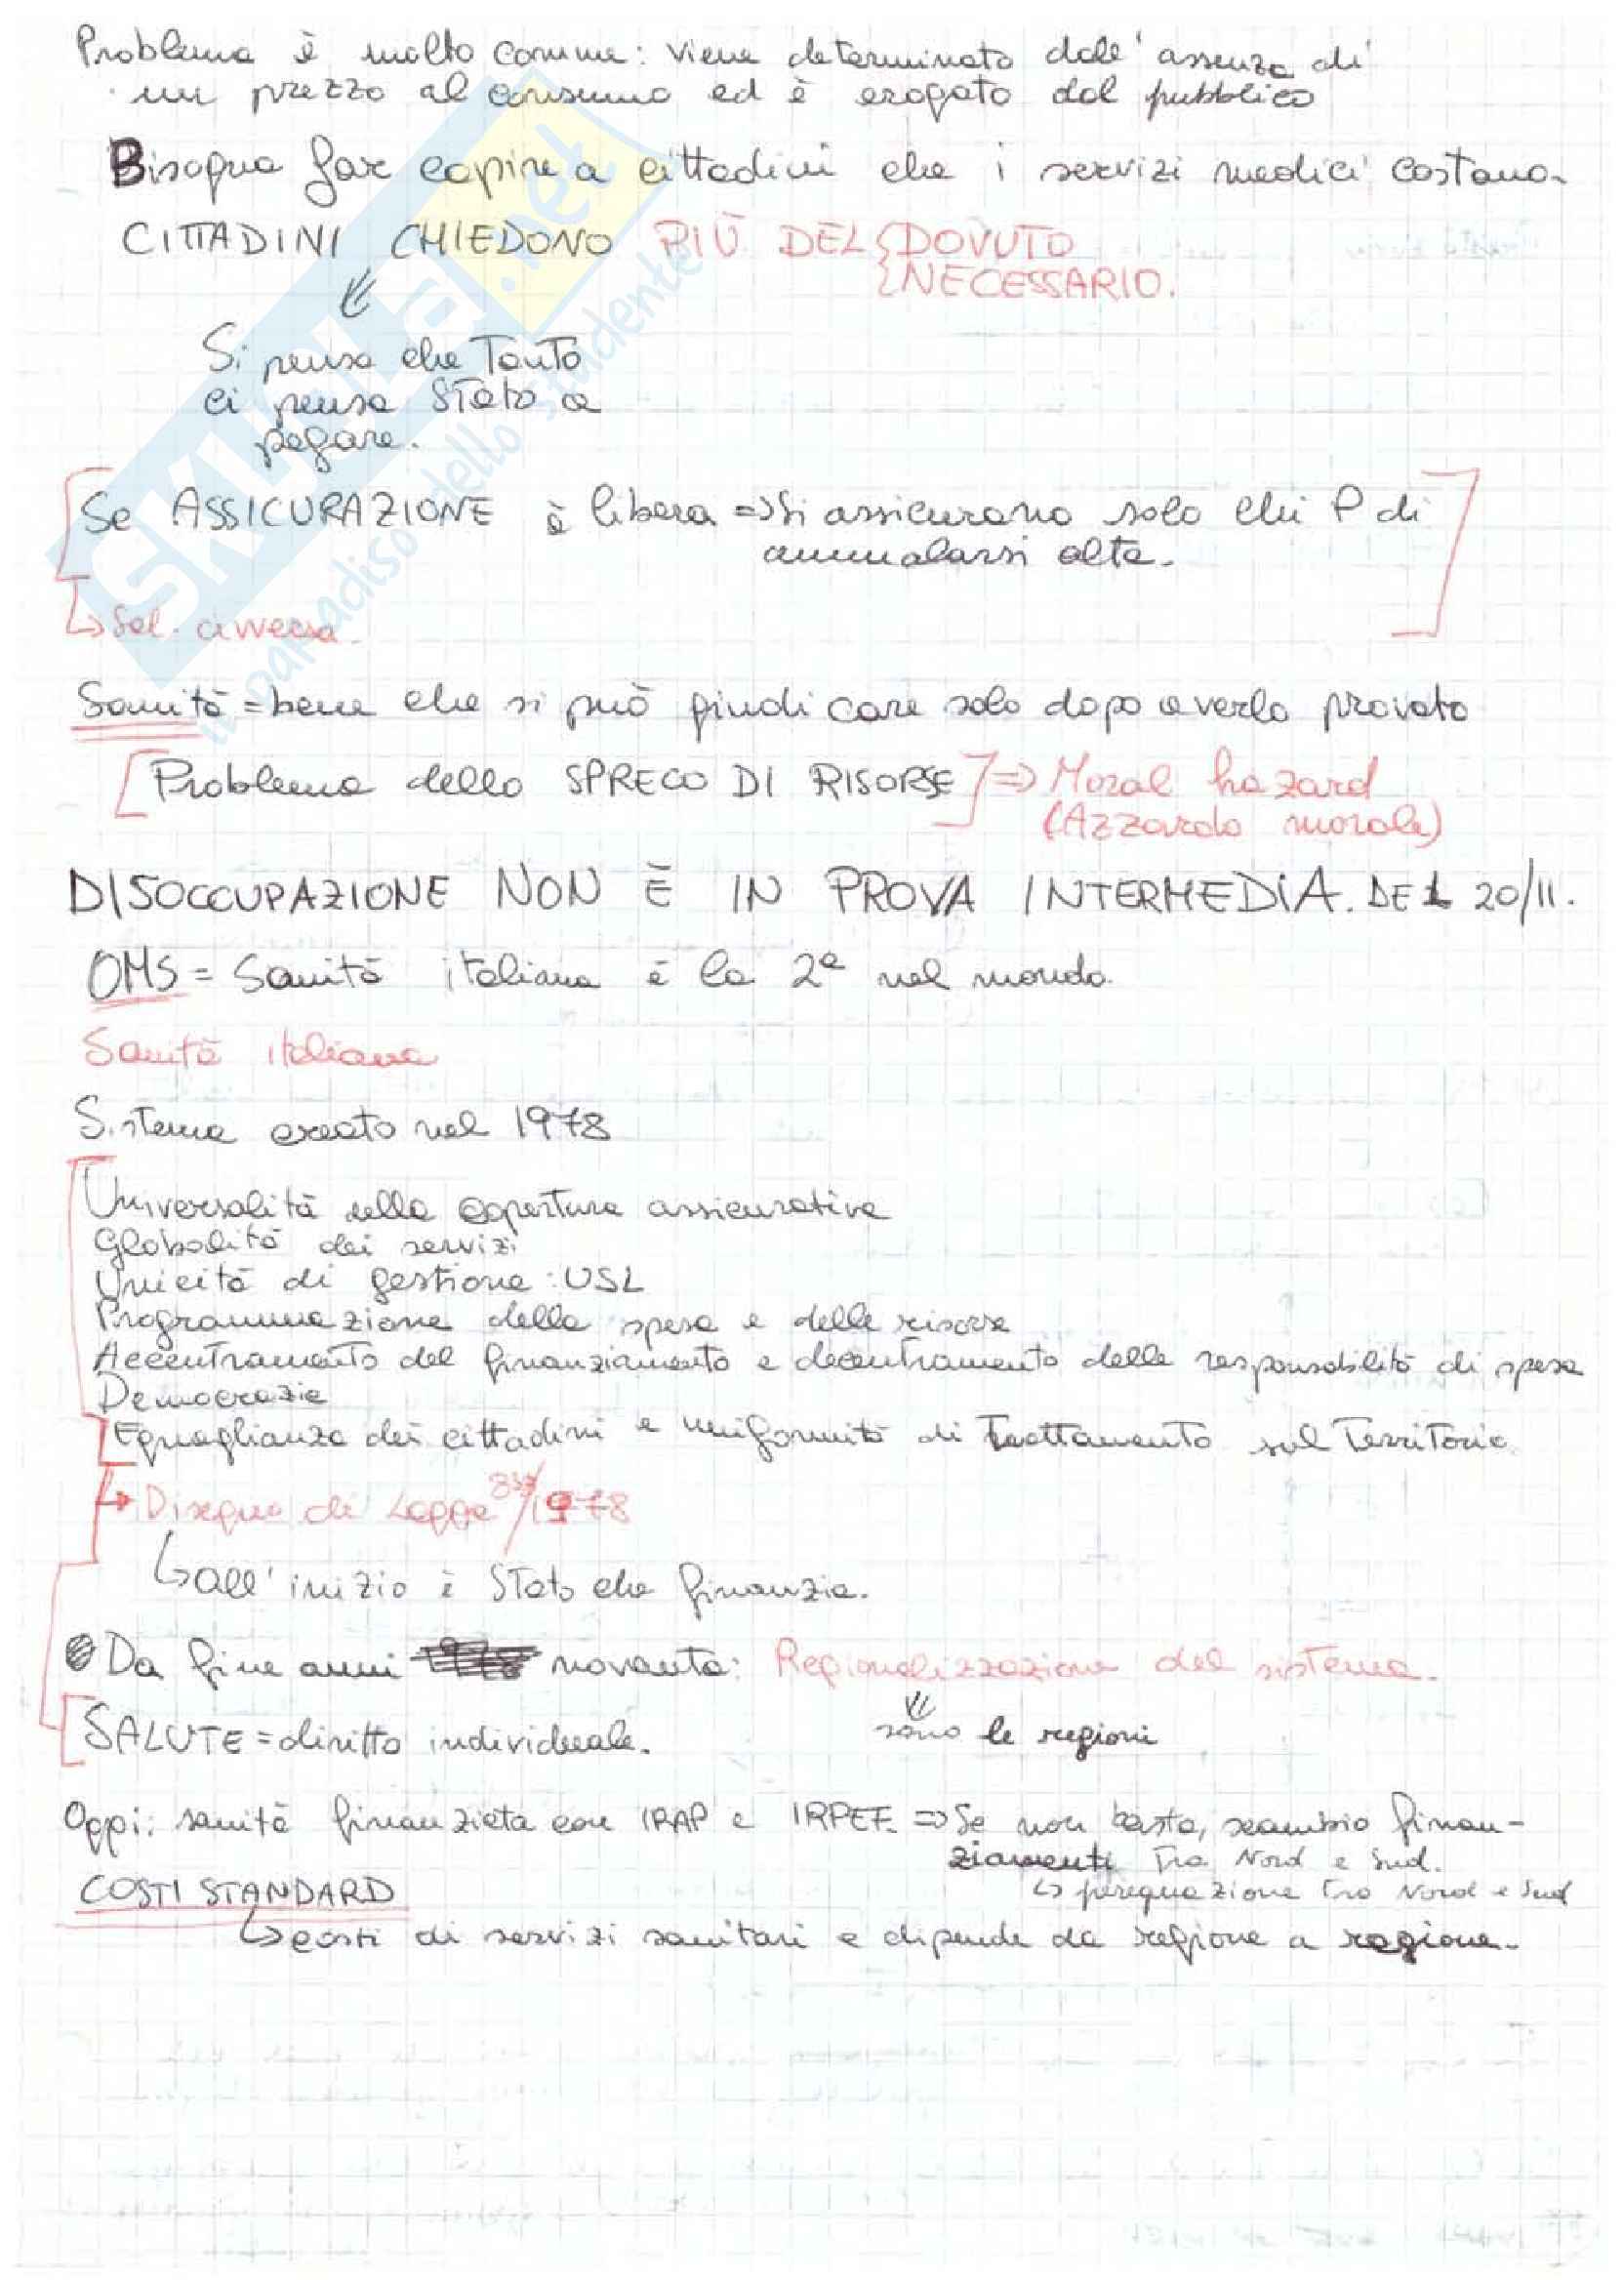 Problema è molto comune: viene determinato dall'assenza di
un prezzo al consumo ed è erogato dal pubblico
Bisogna far capire a cittadini che i servizi medici costano.
CITTADINI CHIEDONO PIÙ DEL { DOVUTO
{ NECESSARIO.
Si pensa che tanto
ci pensa Stato a
pagare.
Se ASSICURAZIONE è libera => Si assicurano solo chi P di
ammalarsi alta.
↳ Sel. avversa.
Sanità = bene che si può giudicare solo dopo averlo provato
[Problema dello SPRECO DI RISORSE] => Moral hazard
(Azzardo morale)
DISOCCUPAZIONE NON È IN PROVA INTERMEDIA. DEL 20/11.
OMS = Sanità italiana è la 2ª nel mondo.
Sanità italiana
Sistema creato nel 1978
Universalità nella copertura assicurativa
Globalità dei servizi
Unicità di gestione: USL
Programmazione della spesa e delle risorse
Accentramento del finanziamento e decentramento delle responsabilità di spesa
Democrazia
Eguaglianza dei cittadini e uniformità di trattamento sul territorio.
→ Disegno di Legge 833/1978
↳ all'inizio è Stato che finanzia.
Da fine anni novanta: Regionalizzazione del sistema.
SALUTE = diritto individuale. sono le regioni
Oggi: sanità finanziata con IRAP e IRPEF. => Se non basta, scambio finan-
ziamenti tra Nord e Sud.
↳ perequazione tra Nord e Sud
COSTI STANDARD
↳ costi di servizi sanitari e dipende da regione a regione.
SKUOLA.net
il paradiso dello studente